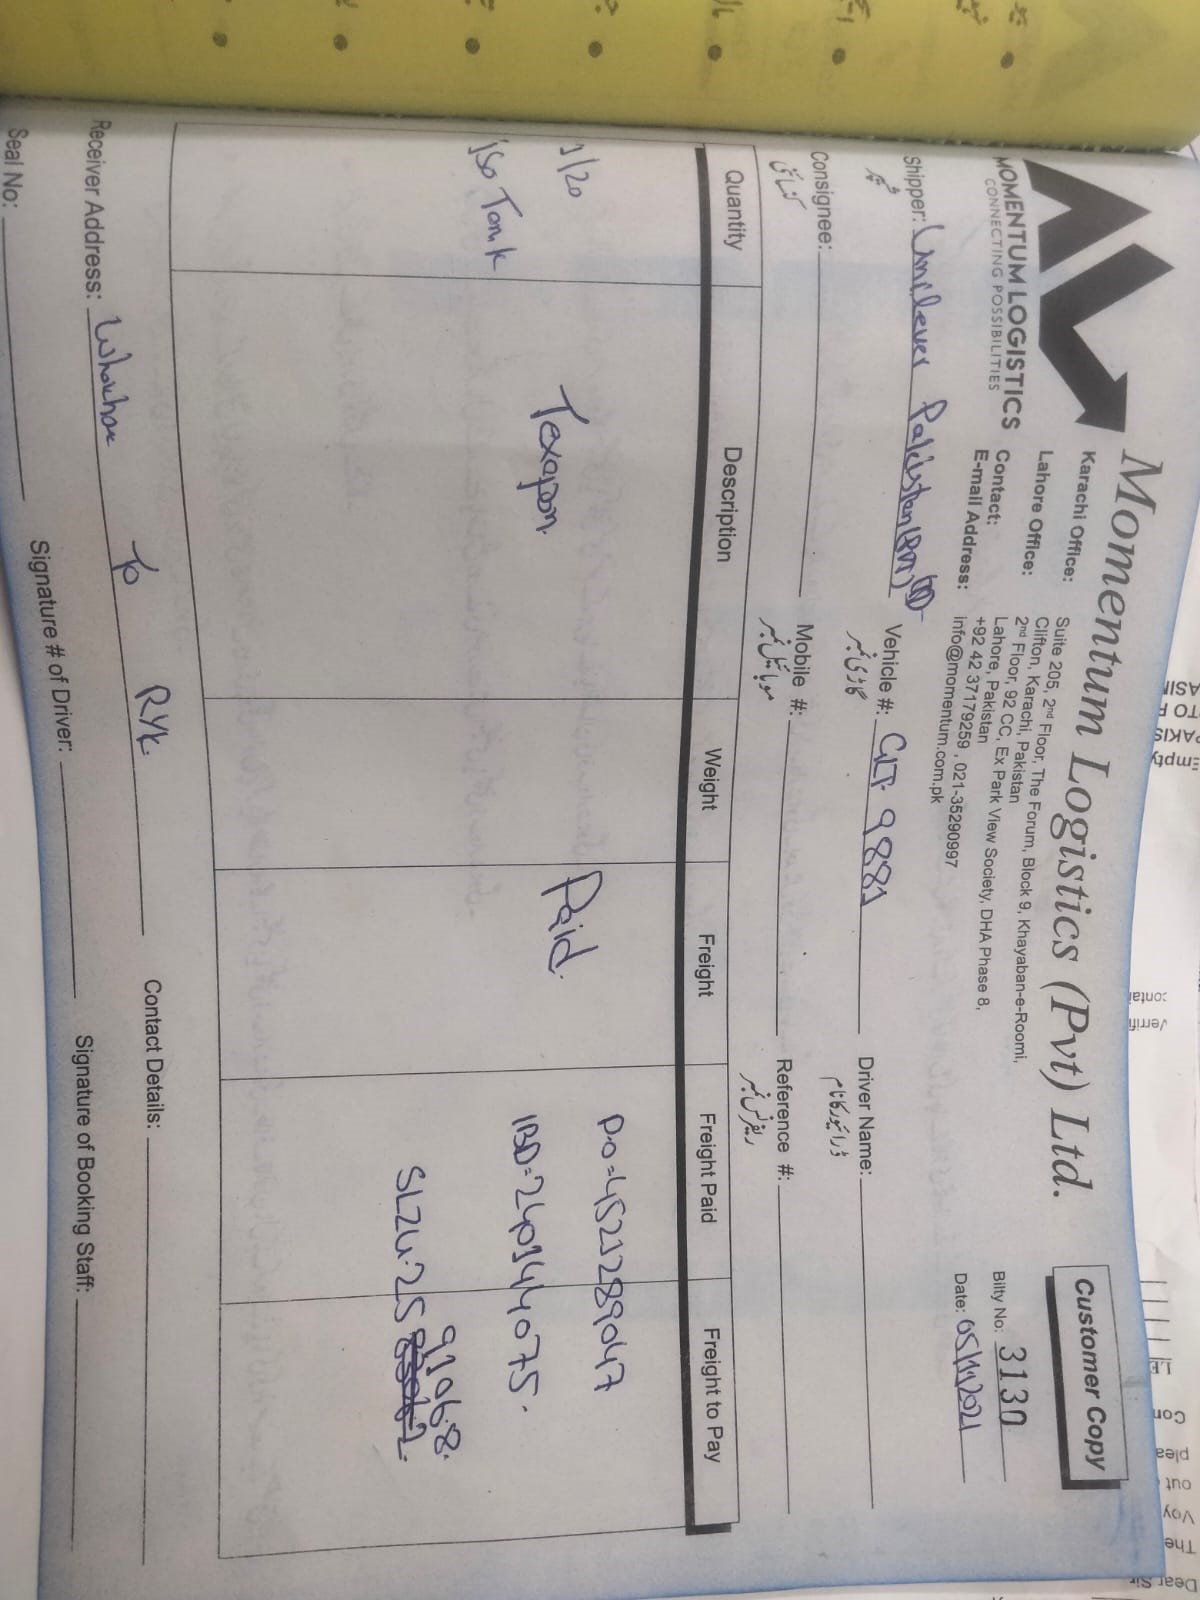 Momentum Logistics (Pvt) Ltd.
Customer Copy
MOMENTUM LOGISTICS
CONNECTING POSSIBILITIES
Karachi Office: Suite 205, 2nd Floor, The Forum, Block 9, Khayaban-e-Roomi,
Clifton, Karachi, Pakistan
Lahore Office: 2nd Floor, 92 CC, Ex Park View Society, DHA Phase 8,
Lahore, Pakistan
Contact: +92 42 37179259 , 021-35290997
E-mail Address: info@momentum.com.pk
Bilty No: 3130
Date: 05/11/2021
Shipper: Unilever Pakistan
شپر
Vehicle #: GLT-9881
گاڑی نمبر
Driver Name:
ڈرائیور کا نام
Consignee:
کنسائنی
Mobile #:
موبائیل نمبر
Reference #:
ریفرنس نمبر
Quantity Description Weight Freight Freight Paid Freight to Pay
1/20 Texapon. Paid. P.O=4521289047
ISO Tank IBD=240144075.
91068.
SLZU.25
Receiver Address: To RYK.
Contact Details:
Signature # of Driver:
Signature of Booking Staff:
Seal No:
Empty
Dear Sir